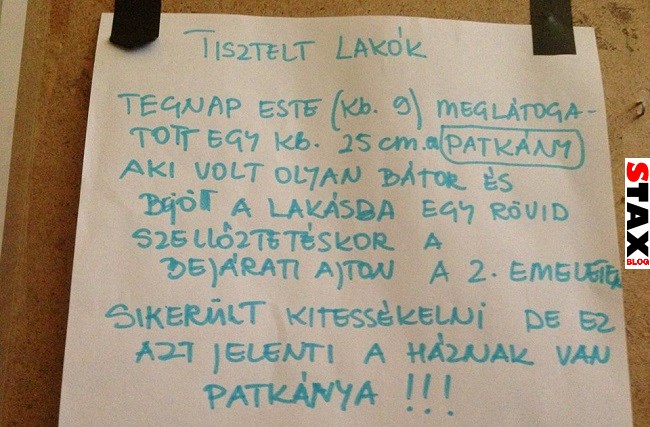 TISZTELT LAKÓK
TEGNAP ESTE (KB. 9) MEGLÁTOGA-
TOTT EGY KB. 25 cm.a PATKÁNY
AKI VOLT OLYAN BÁTOR ÉS
BEJÖTT A LAKÁSBA EGY RÖVID
SZELLŐZTETÉSKOR A
BEJÁRATI AJTON A 2. EMELETEN
SIKERÜLT KITESSÉKELNI DE EZ
AZT JELENTI A HÁZNAK VAN
PATKÁNYA !!!
STAX
BLOG